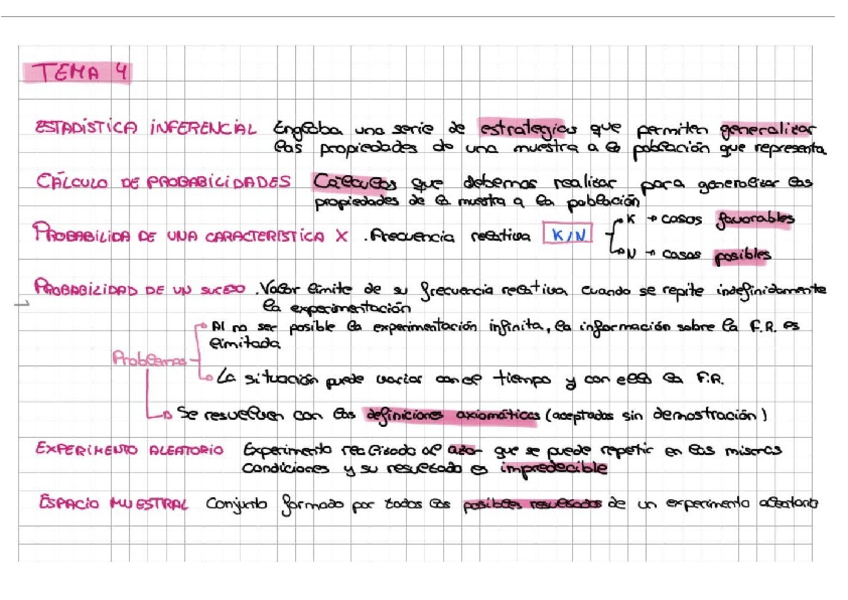 TEMA 4
ESTADÍSTICA INFERENCIAL Engloba una serie de estrategias que permiten generalizar
las propiedades de una muestra a la población que representa
CÁLCULO DE PROBABILIDADES Cálculos que debemos realizar para generalizar las
propiedades de la muestra a la población
PROBABILIDA DE UNA CARACTERÍSTICA X . Frecuencia relativa K/N
K → casos favorables
N → casos posibles
PROBABILIDAD DE UN SUCESO . Valor límite de su frecuencia relativa, cuando se repite indefinidamente
la experimentación
Problemas
Al no ser posible la experimentación infinita, la información sobre la F.R. es
limitada
La situación puede variar con el tiempo y con ella la F.R.
Se resuelven con las definiciones axiomáticas (aceptadas sin demostración)
EXPERIMENTO ALEATORIO Experimento realizado al azar que se puede repetir en las mismas
condiciones y su resultado es impredecible
ESPACIO MUESTRAL Conjunto formado por todos los posibles resultados de un experimento aleatorio
1